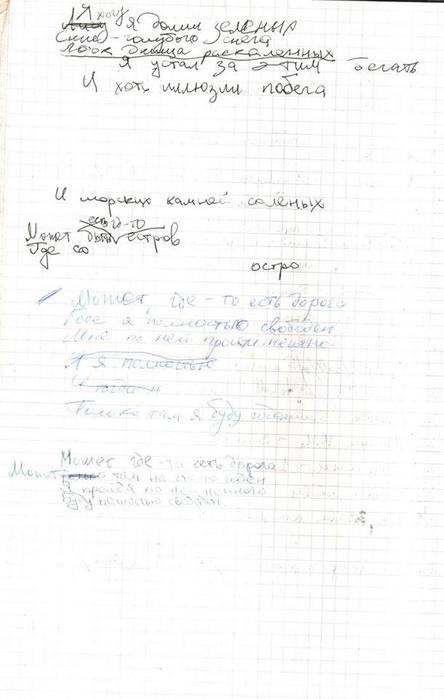 Я хочу
я долин зеленых
Сине-голубого снега
Лодок днища раскаленных
Я устал за этим бегать
И хоть иллюзии побега
И морских камней солёных
есть где-то
Может быть остров
Где со
остро
Может, где-то есть дорога
Где я полностью свободен
Мне по ней пройти немного
И я полностью
И тогда я
Только там я буду
Может где-то есть дорога
Может там на
Я пройдя по ней немного
Буду полностью свободен